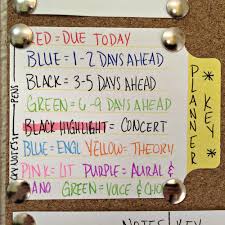 RED = DUE TODAY
BLUE = 1-2 DAYS AHEAD
BLACK = 3-5 DAYS AHEAD
GREEN = 6-9 DAYS AHEAD
BLACK HIGHLIGHT = CONCERT
BLUE = ENGL YELLOW = THEORY
PINK = LIT PURPLE = AURAL &
PIANO GREEN = VOICE & CHOIR
KEY NOTES
PENS
*PLANNER
KEY*
NOTES KEY